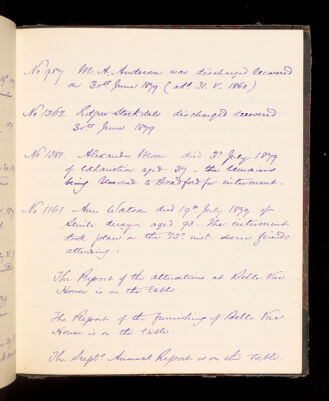 No 989 M. A. Anderson was discharged recovered
on 30th June 1879 (adm 31. V. 1860)
No 1362. Stockdale discharged recovered
30th June 1879
No 1381. Alexander died 3rd July 1879
of exhaustion aged 39. the remains
being removed to Bradford for interment.
No 1161 Ann Watson died 19th July 1879 of
Senile decay aged 93. The interment
took place on the 23rd inst. some friends
attending.
The Report of the alterations at Belle Vue
House is on the table.
The Report of the furnishing of Belle Vue
House is on the table.
The Supts. Annual Report is on the table.